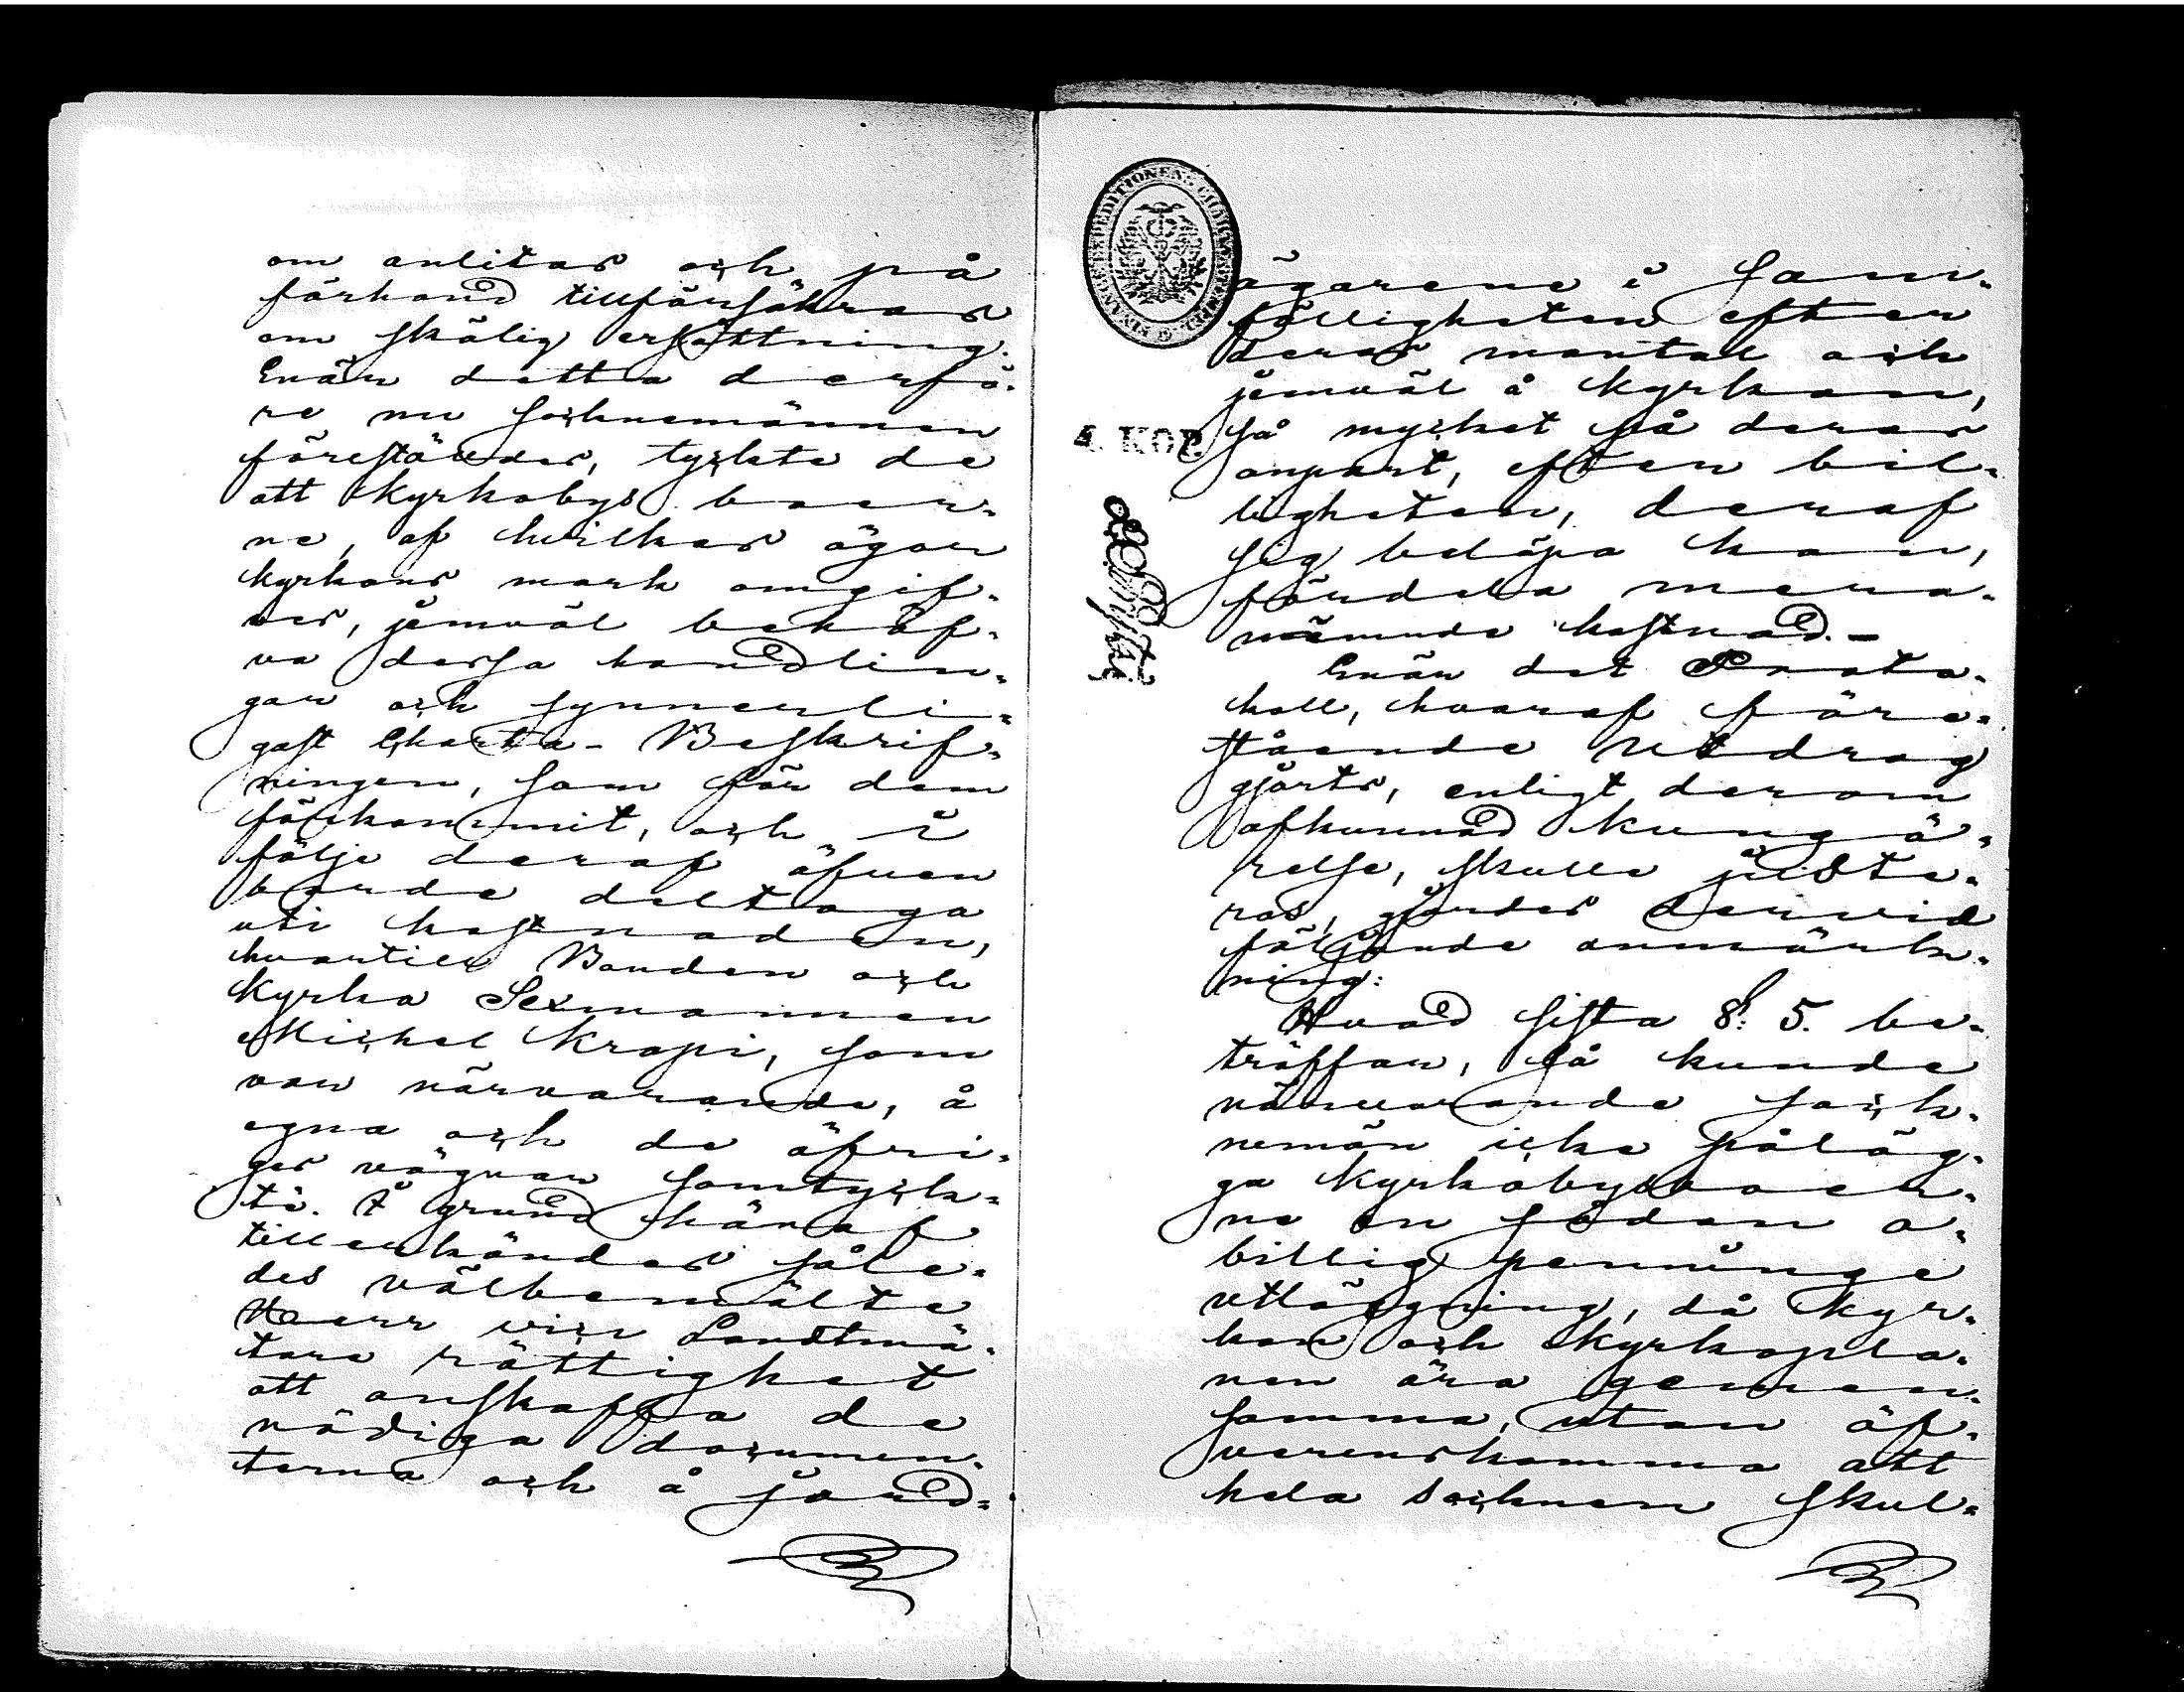 om anlitas och på
förhand tillförsäkras
om skälig ersättning.
Enär detta derfö-
re nu sochnemännen
föreställdes, tyckte de
att Kyrkobys boer-
ne, af hvilkas ägor
Kyrkans mark omgif-
ves, jemväl behöf-
va dessa handlin-
gar och synnerli-
gast Charta-Beskrif-
ningen, som för dem
förkommit, och i
följe deraf äfven
borde deltaga
uti kostnaden,
hvartill Bonden och
Kyrko Sexmannen
Michel Kropi, som
var närvarande, å
egna och de öfri-
gas vägnar samtyck-
te. På grund häraf
tillerkändes såle-
des välbemälte
Herr vice Landtmä-
tare rättighet
att anskaffa de
nödiga documen-
terna och å jord-
ägarene i Sam-
fälligheten efter
deras mantal och
jemväl å Kyrkan,
så mycket på deras
anpart, efter bil-
ligheten, deraf
sig belöpa kan,
fördela mera-
nämnde kostnad.-
Enär det Proto-
koll, hvaraf före-
stående Utdrag
gjorts, enligt derom
afkunnad kungö-
relse, skulle juste-
ras, gjordes dervid
följande anmärk-
ning:
Hvad sista §: 5. be-
träffar, så kunde
närvarande soch-
nemän icke påläg-
ga Kyrkobyboer-
ne en sådan o-
billig penninge
utläggning, då Kyr-
kan och Kyrkopla-
nen äro gemen-
samma, utan öf-
verenskomma att
hela Sochnen skul-
FINANSEXPEDITIONEN
4 KOP.